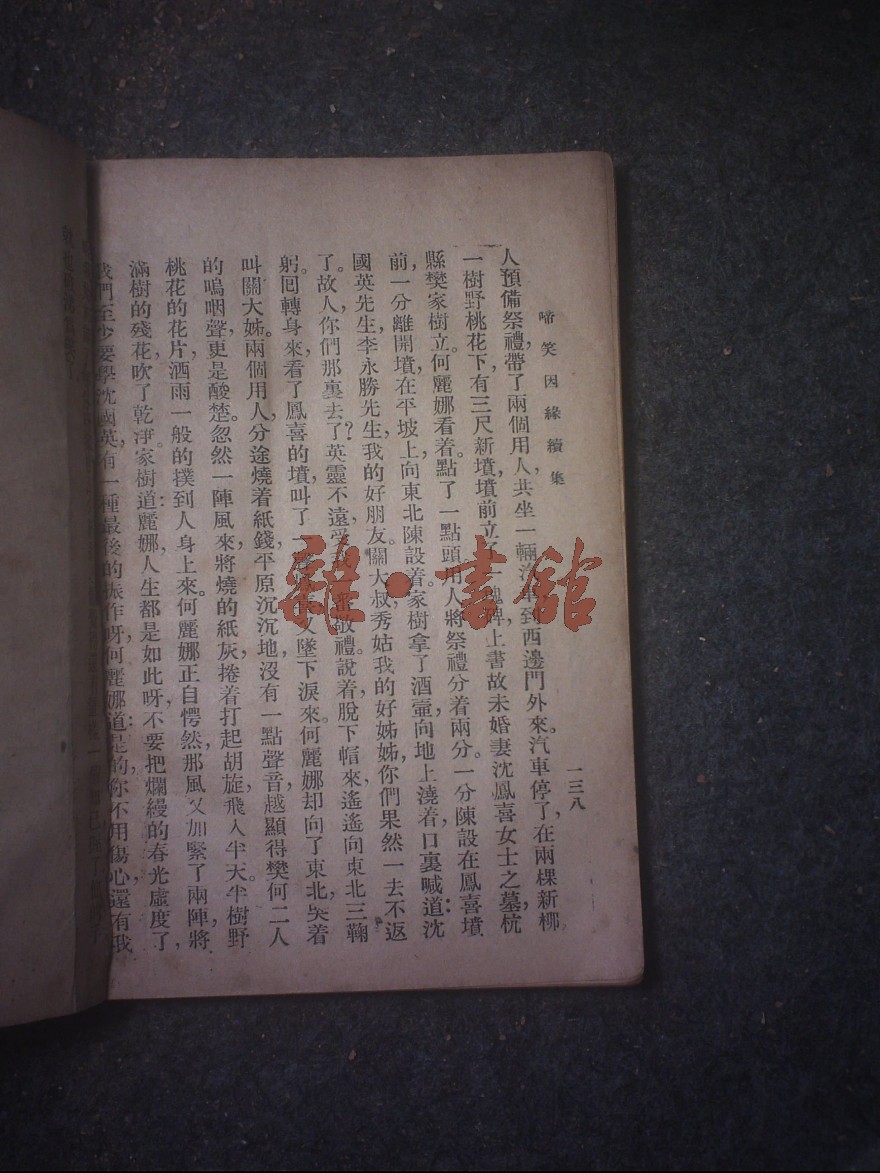 啼笑因緣續集
一三八
人預備祭禮，帶了兩個用人，共坐一輛汽車到西邊門外來。汽車停了，在兩棵新柳，
一樹野桃花下，有三尺新墳，墳前立了一塊碑，上書故未婚妻沈鳳喜女士之墓，杭
縣樊家樹立。何麗娜看着，點了一點頭，用人將祭禮分着兩分。一分陳設在鳳喜墳
前，一分離開墳，在平坡上向東北陳設着。家樹拿了酒壺，向地上澆着，口裏喊道：沈
國英先生，李永勝先生，我的好朋友，關大叔，秀姑我的好姊姊，你們果然一去不返
了。故人你們那裏去了？英靈不遠，受我敬禮。說着，脫下帽來，遙遙向東北三鞠
躬。囘轉身來，看了鳳喜的墳，叫了又墜下淚來。何麗娜却向了東北，哭着
叫關大姊。兩個用人，分途燒着紙錢。平原沉沉地，沒有一點聲音，越顯得樊何二人
的嗚咽聲，更是酸楚。忽然一陣風來，將燒的紙灰，捲着打起胡旋，飛入半天。半樹野
桃花的花片，洒雨一般的撲到人身上來。何麗娜正自愕然，那風又加緊了兩陣，將
滿樹的殘花，吹了乾淨。家樹道：麗娜，人生都是如此呀，不要把爛縵的春光虛度了，
我們至少要學沈國英，有一種最後的振作呀。何麗娜道：是的，你不用傷心，還有我
雜·書館